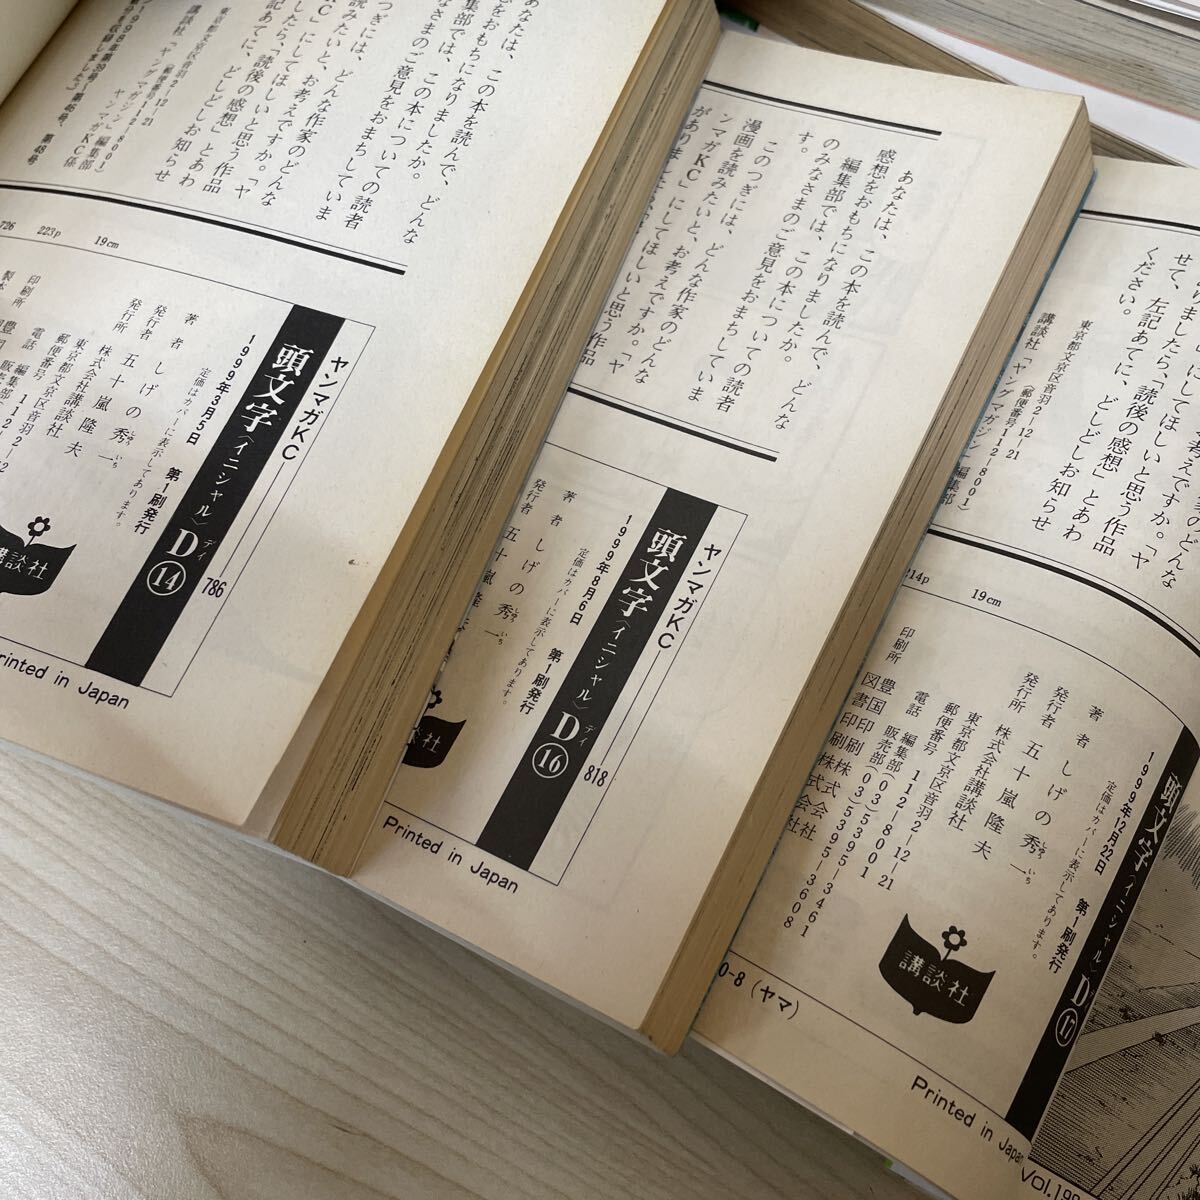 あなたは、この本を読んで、どんな
おもちになりましたか。
では、この本についての読者
なさまのご意見をおまちしていま
つぎには、どんな作家のどんな
読みたいと、お考えですか。「ヤ
KC」にしてほしいと思う作品
したら、「読後の感想」とあわ
記あてに、どしどしお知らせ
東京都文京区音羽2-12-21
(郵便番号112-8001)
講談社「ヤングマガジン」編集部
ヤンマガKC係
223p
19cm
ヤンマガKC
786
頭文字〈イニシャル〉D ディ ⑭
1999年3月5日 第1刷発行
定価はカバーに表示してあります。
著者 しげの秀一
発行者 五十嵐隆夫
発行所 株式会社講談社
東京都文京区音羽2-12
郵便番号 112-
電話 編集
印刷所
講談社
Printed in Japan
あなたは、この本を読んで、どんな
感想をおもちになりましたか。
編集部では、この本についての読者
のみなさまのご意見をおまちしていま
す。
このつぎには、どんな作家のどんな
漫画を読みたいと、お考えですか。「ヤ
ンマガKC」にしてほしいと思う作品
がありましたら
ヤンマガKC
818
頭文字〈イニシャル〉D ディ ⑯
1999年8月6日 第1刷発行
定価はカバーに表示してあります。
著者 しげの秀一
発行者 五十嵐隆
談社
Printed in Japan
にしてほしいと思う作品
ありましたら、「読後の感想」とあわ
せて、左記あてに、どしどしお知らせ
ください。
東京都文京区音羽2-12-21
(郵便番号112-8001)
講談社「ヤングマガジン」編集部
214p
19cm
頭文字〈イニシャル〉D ⑰
1999年12月22日 第1刷発行
定価はカバーに表示してあります。
著者 しげの秀一
発行者 五十嵐隆夫
発行所 株式会社講談社
東京都文京区音羽2-12-21
郵便番号 112-8001
電話 編集部(03)5395-3461
販売部(03)5395-3608
印刷所 豊国印刷株式会社
図書印刷株式会社
講談社
0-8 (ヤマ)
Printed in Japan